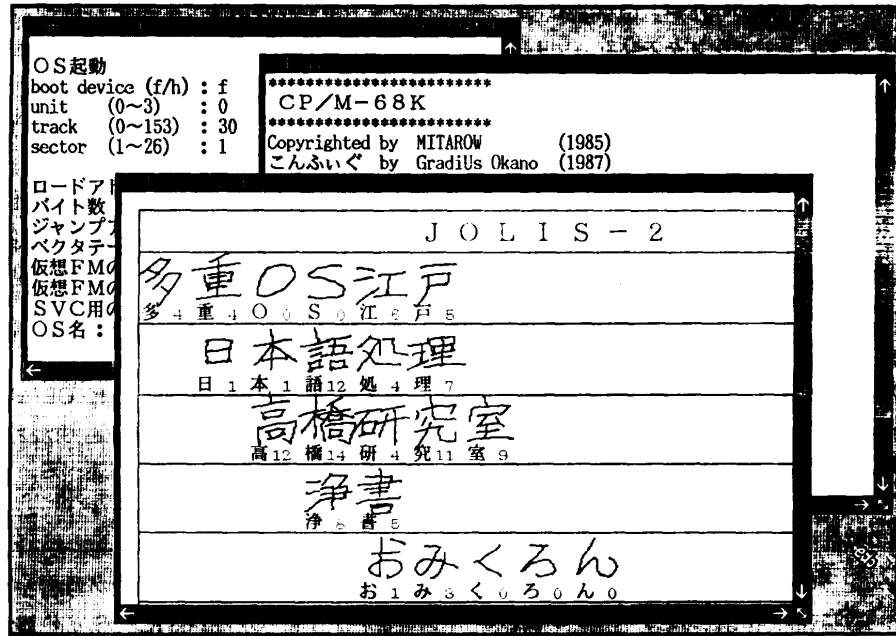 OS起動
boot device (f/h) : f
unit (0~3) : 0
track (0~153) : 30
sector (1~26) : 1
ロードアド
バイト数
ジャンプア
ベクタテー
仮想FMの
仮想FMの
SVC用の
OS名:
***********************
CP/M-68K
***********************
Copyrighted by MITAROW (1985)
こんふぃぐ by GradiUs Okano (1987)
JOLIS-2
多重OS江戸
多 4 重 4 O 0 S 0 江 6 戸 5
日本語処理
日 1 本 1 語12 処 4 理 7
高橋研究室
高12 橋14 研 4 究11 室 9
浄書
浄 8 書 5
おみくろん
お 1 み 3 く 0 ろ 0 ん 0